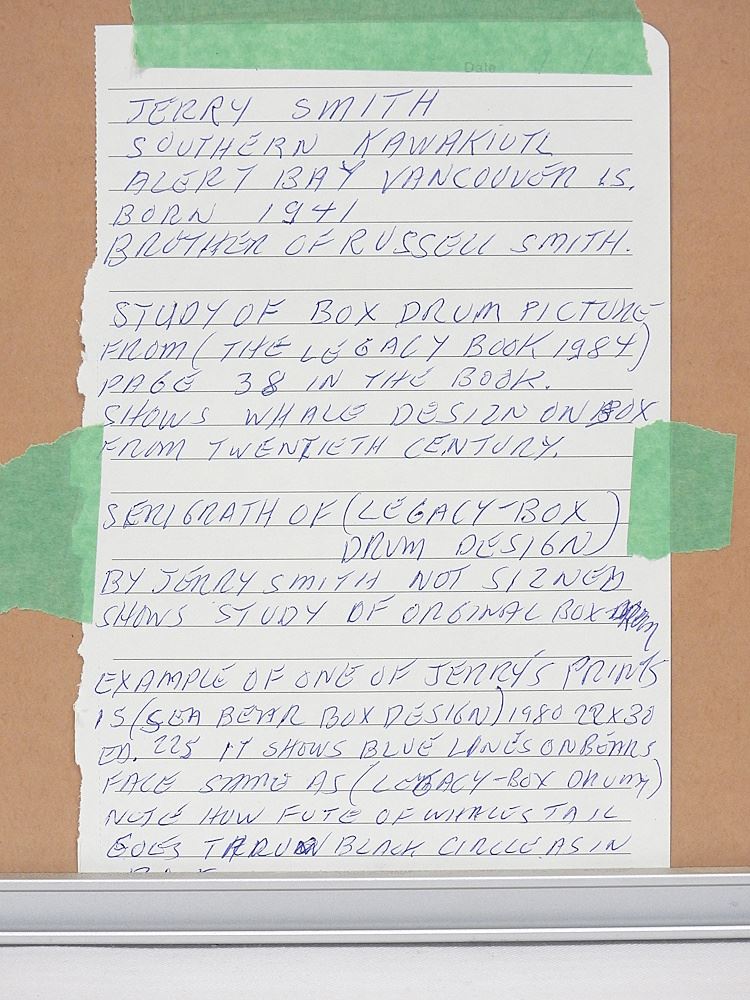 Date / /
JERRY SMITH
SOUTHERN KAWAKIUTL
ALERT BAY VANCOUVER IS.
BORN 1941
BROTHER OF RUSSELL SMITH.
STUDY OF BOX DRUM PICTURE
FROM (THE LEGACY BOOK 1984)
PAGE 38 IN THE BOOK.
SHOWS WHALE DESIZN ON BOX
FROM TWENTIETH CENTURY.
SERIGRATH OF (LEGACY-BOX
DRUM DESIGN)
BY JERRY SMITH NOT SIZNED
SHOWS STUDY OF ORGINAL BOX DRUM
EXAMPLE OF ONE OF JERRY'S PRINTS
IS (SEA BEAR BOX DESIGN) 1980 22X30
ED. 225 IT SHOWS BLUE LINES ON BEARS
FACE SAME AS (LEGACY-BOX DRUM)
NOTE HOW FUTE OF WHALES TAIL
GOES THRU BLACK CIRCLE AS IN